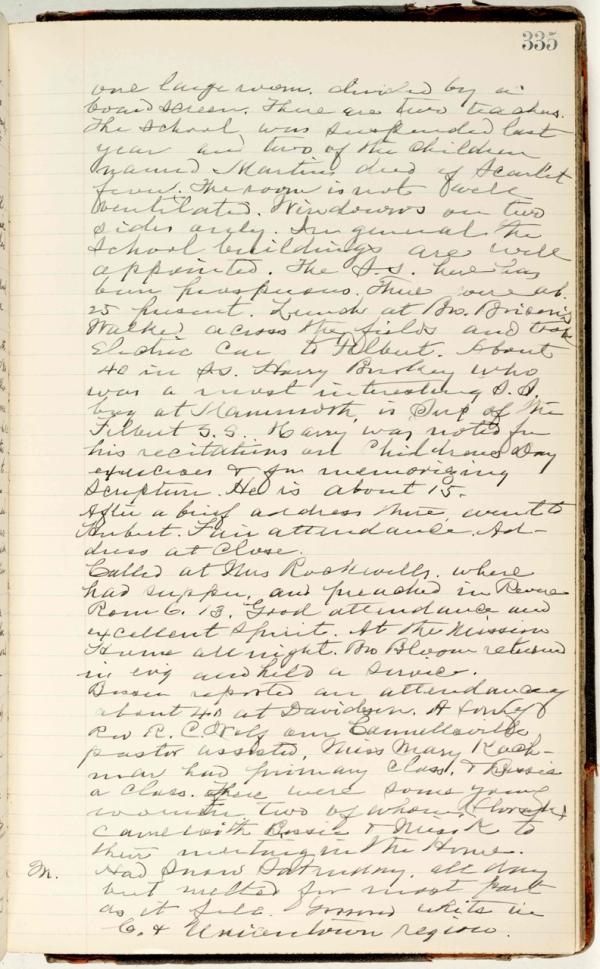 335
one large room. divided by a
board screen. There are two teachers.
The school was suspended last
year and two of the children
named Martin died of Scarlet
fever. The room is not well
ventilated. Windows on two
sides only. In general the
school buildings are well
appointed. The S.S. here has
been prosperous. There were ab.
25 present. Lunch at Bro.
Walked across the fields and took
Electric Car to Filbert. About
40 in S.S. Harry who
was a most interesting S.S.
boy at Mammoth, is Supt of the
Filbert S.S. Harry was noted for
his recitations on Childrens Day
exercises & for memorizing
Scripture. He is about 15.
After a brief address there, went to
Fair attendance. Ad-
dress at close.
Called at Mrs Rockwells, where
had supper, and preached in
Rom 6. 13. Good attendance and
excellent spirit. At the Mission
Home all night. Bro Bloom returned
in evg and held a service.
Bessie reported an attendance of
about 40 at Davidson. A son of
Rev R. C. Wolf our Connellsville
pastor assisted. Miss Mary Koch-
mar had primary class, & Bessie
a class. There were some young
women two of whom
came with Bessie & Miss K to
their meeting in the Home.
M. Had Snow Saturday. all day
but melted for most part
as it fell. Ground white in
C. & Uniontown region.